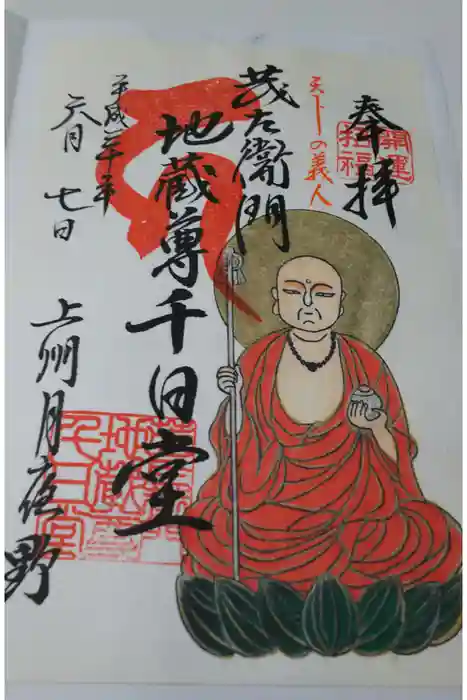 奉拝
開運
招福
天下の義人
茂左衛門
地蔵尊千日堂
平成三十年
六月七日
上州月夜野